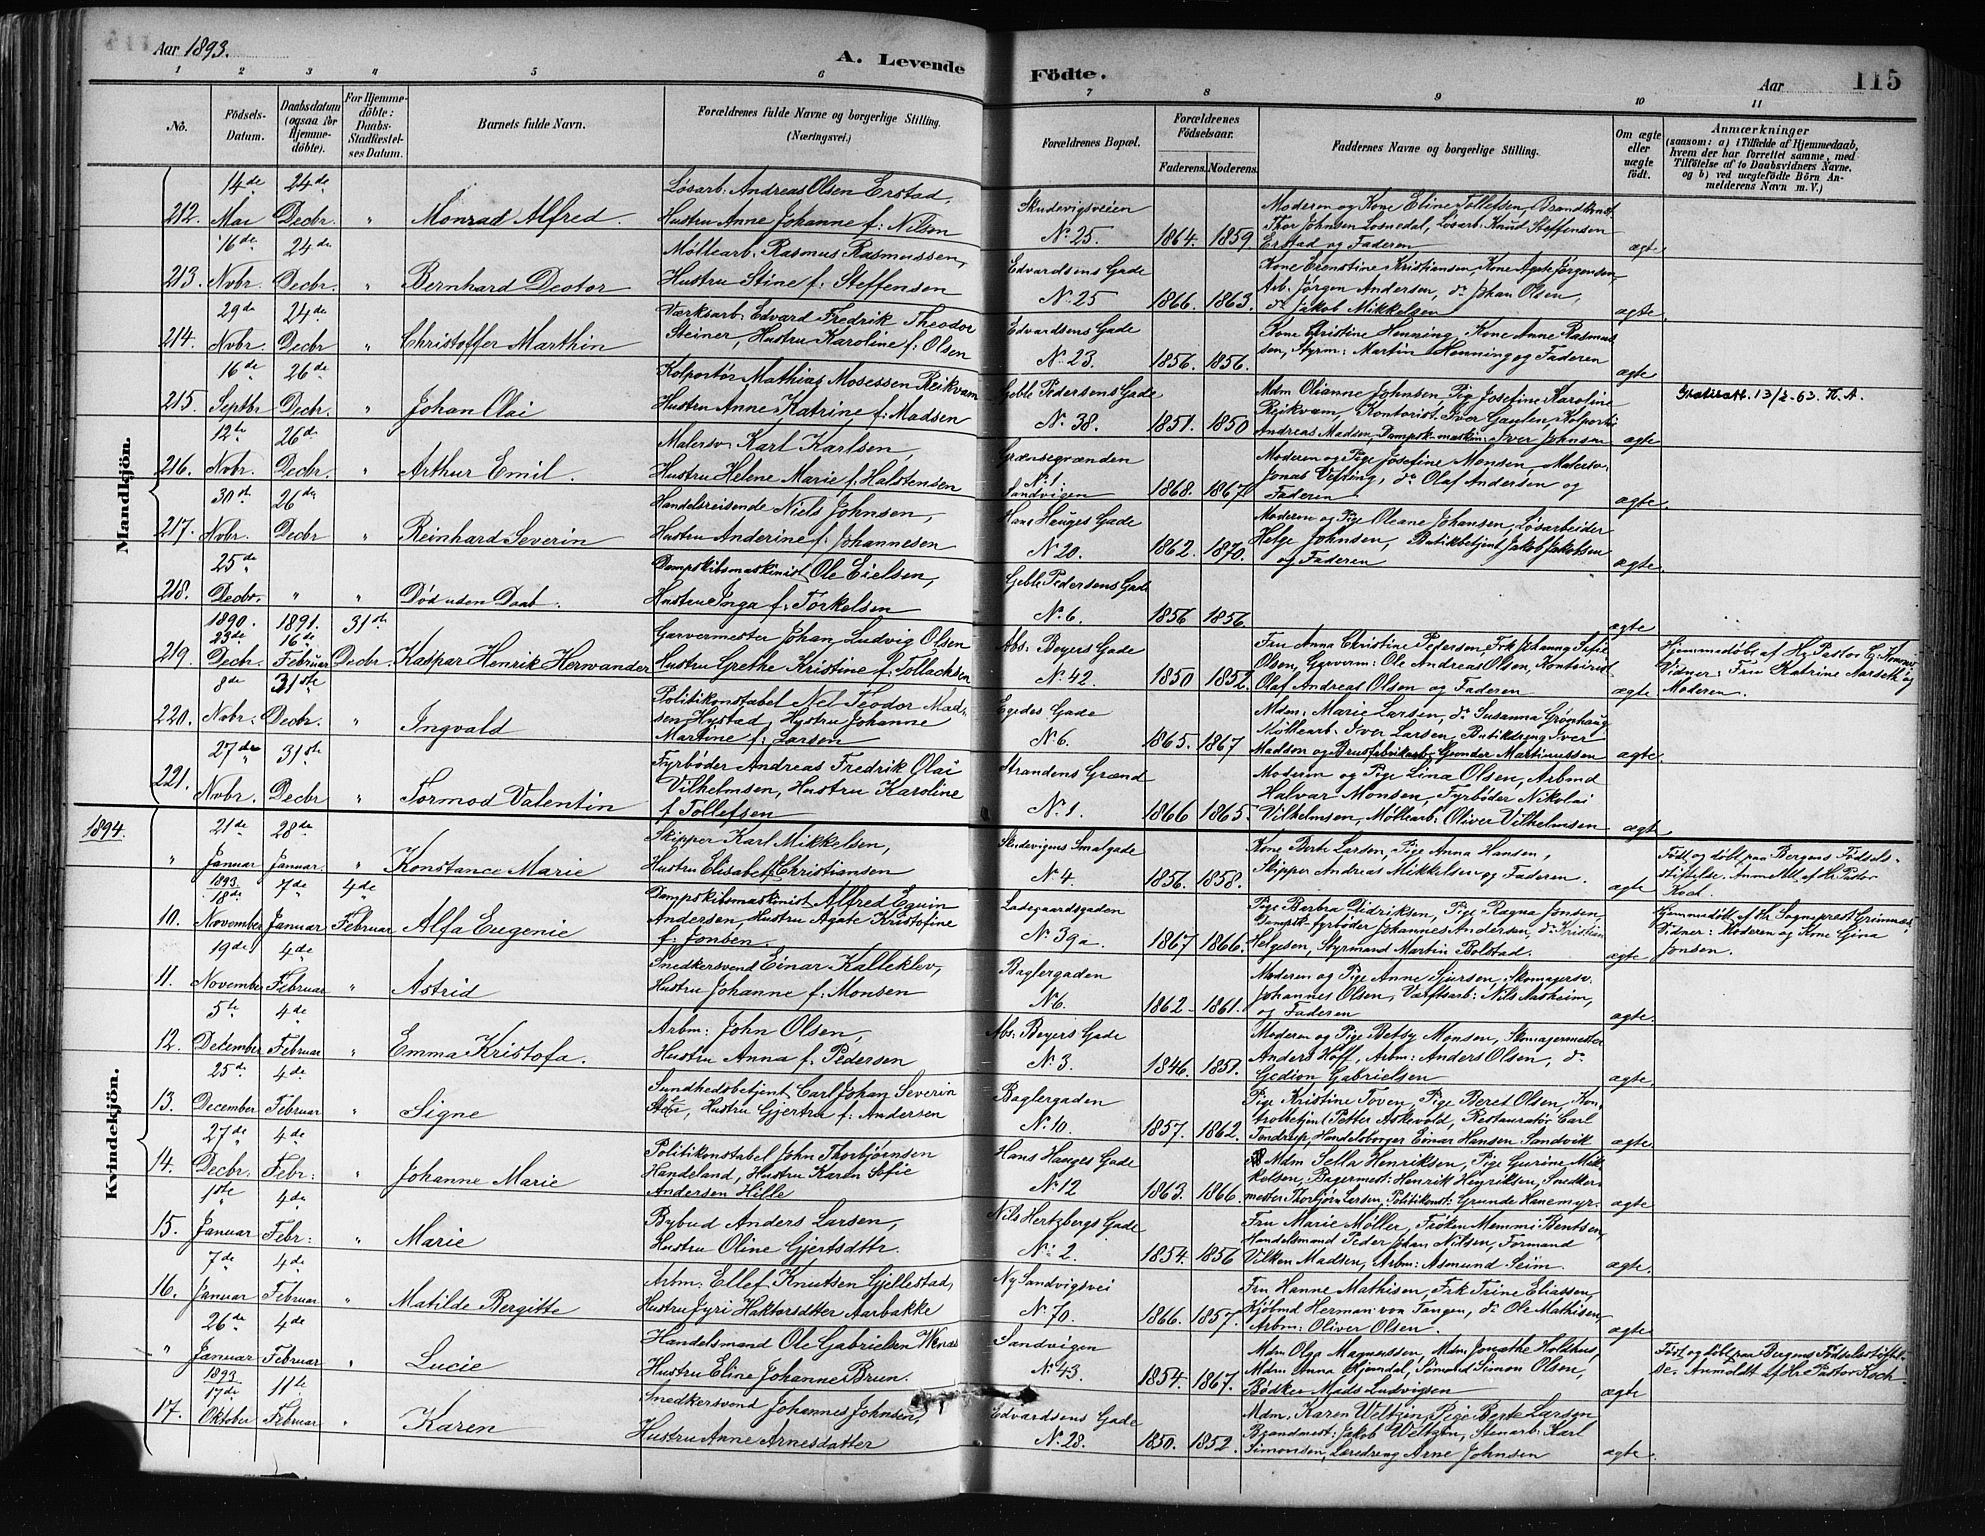 Aar 1893.
A. Levende Födte.
Aar
115
1 2 3 4 5 6 7 8 9 10 11
No.
Födsels-Datum.
Daabsdatum (ogsaa for Hjemme-döbte).
For Hjemme-döbte: Daabs-Stadfæstel-ses Datum.
Barnets fulde Navn.
Forældrenes fulde Navne og borgerlige Stilling. (Næringsvei.)
Forældrenes Bopæl.
Forældrenes Födselsaar.
Faderens. Moderens.
Faddernes Navne og borgerlige Stilling.
Om ægte eller uægte födt.
Anmærkninger
(saasom: a) i Tilfælde af Hjemmedaab, hvem der har forrettet samme, med Tilföielse af to Daabsvidners Navne, og b) ved uægtefödte Börn An-melderens Navn m. V.)
Mandkjön.
212. 14de Mai 24de Decbr. " Monrad Alfred.
Løsarb: Andreas Olsen Erstad,
Hustru Anne Johanne f: Nilson
Skudevigsveien
No 25. 1864. 1859
Moderen og Kone Eline Tollefsen, Brandkonst
Thor Johnsen Losnedal, Løsarb: Knud Steffensen
Erstad og Faderen
ægte.
213. 16de Nvbr. 24de Decbr. " Bernhard Deotor
Møllearb: Rasmus Rasmussen,
Hustru Stine f: Steffensen
Edvardsens Gade
No 25 1866. 1863.
Kone Ernstine Kristiansen, Kone Agate Jørgensen,
Arb: Jörgen Andersen, do Johan Olsen,
do Jakob Mikkelsen
ægte.
214. 29de Nvbr. 24de Decbr " Christoffer Marthin
Værksarb: Edvard Fredrik Theodor
Steiner, Hustru Karoline f: Olsen
Edvardsens Gade
No 23. 1856. 1856.
Kone Christine Henning, Kone Anne Rasmus
sen, Styrm: Martin Henning og Faderen
ægte
215. 16de Septbr 26de Decbr. " Johan Olai
Kolportör Mathias Mosessen Reikvam
Hustru Anne Katrine f: Madsen
Geble Pedersens Gade
No. 38. 1851. 1850
Mdm Olianne Johnsen, Pige Josefine Karoline
Reikvam, Kontorist Iver Gaulen, Kolportör
Andreas Madsen, Dampsk. maskin: Iver Johnsen
ægte
Gratisatt. 13/2-63. K.A.
216. 12te Nvbr. 26de Decbr. " Arthur Emil.
Malersv: Karl Karlsen,
Hustru Helene Marie f: Halstensen
Grænsegrænden
No 1.
Sandvigen 1868. 1867
Moderen og Pige Josefine Monsen, Malersv:
Jonas Vefring, do Olaf Andersen og
Faderen
ægte.
217. 30te Nvbr. 26de Decbr " Reinhard Severin
Handelsreisende Niels Johnsen,
Hustru Anderine f: Johannesen
Hans Hauges Gade
No 20. 1862. 1870.
Moderen og Pige Oleane Johansen, Løsarbeider
Helge Johnsen, Butikbetjent Jakob Jakobsen
og Faderen
ægte.
218. 25de Decbr. " " Död uden Daab.
Dampskibsmaskinist Ole Eielsen,
Hustru Inga f: Torkelsen
Geble Pedersens Gade
No. 6. 1856 1856.
ægte
219. 1890. 23de Decbr. 1891. 16de Februar 31te Decbr. Kaspar Henrik Herwander
Garvermester Johan Ludvig Olsen
Hustru Grethe Kristine f: Tollachsen
Abs: Beyers Gade
No. 42. 1850 1852.
Fru Anna Christine Pedersen, Frk Johanna Sofie
Olsen, Garverm: Ole Andreas Olsen, Kontorist
Olaf Andreas Olsen og Faderen
ægte
Hjemmedöbt af Hr. Pastor
Vidner: Fru Katrine Aarseth og
Moderen.
220. 8de Nvbr. 31ste Decbr. " Ingvald
Politikonstabel Nel Teodor Mad-
sen Hystad, Hustru Johanne
Martine f: Larsen
Egedes Gade
No 6. 1865. 1867
Mdm: Marie Larsen, do Susanna Grønhaug
Møllearb: Iver Larsen, Butikdreng Iver
Madsen og Brusfabrikarb: Gunder Martinussen
ægte.
221. 27de Nvbr. 31te Decbr " Tormod Valentin
Fyrböder Andreas Fredrik Olai
Vilhelmsen, Hustru Karoline
f. Tollefsen
Strandens Grænd
No 1. 1866 1865.
Moderen og Pige Lina Olsen, Arbmd
Halvar Monsen, Fyrböder Nikolai
Vilhelmsen, Møllearb: Oliver Vilhelmsen
ægte
1894.
Kvindekjön.
" 21de Januar 28de Januar. " Konstance Marie
Skipper Karl Mikkelsen,
Hustru Elisabet f: Christiansen
Skudevigens Smalgade
No 4. 1856. 1858.
Kone Berte Larsen, Pige Anna Hansen,
Skipper Andreas Mikkelsen og Faderen.
ægte
Född og döbt paa Bergens Födsels-
stiftelse. Anmeldt af Hr Pastor
Koch.
10. 1893 18de November 7de Januar 4de Februar Alfa Eugenie
Dampskibsmaskinist Alfred Eguin
Andersen, Hustru Agate Kristofine
f: Jonsen.
Ladegaardsgaden
No 39a. 1867 1866.
Pige Barbra Didriksen, Pige Ragna Jonsen,
Dampsk-fyrböder Johannes Andersen, do Kristian
Helgesen, Styrmand Martin Bolstad.
ægte
Hjemmedöbt af Hr Sognepræst Grimnæs
Vidner: Moderen og Kone Gina
Jonsen.
11. 19de November 4de Februar " Astrid
Snedkersvend Einar Kalleklev,
Hustru Johanne f: Monsen
Baglergaden
No 6. 1862 1861.
Moderen og Pige Anne Sjursen, Skomagersv:
Johannes Olsen, Værftsarb: Nils Aasheim,
og Faderen
ægte.
12. 5te December 4de Februar " Emma Kristofa.
Arbm: John Olsen,
Hustru Anna f: Pedersen
Abs: Beyers Gade
No 3. 1846. 1851.
Moderen og Pige Betsy Monsen, Skomagermester
Anders Hoff, Arbm: Anders Olsen, do
Gedion Gabrielsen
ægte.
13. 25de December 4de Februar " Signe
Sundhedsbetjent Carl Johan Severin
, Hustru Gjertru f: Andersen
Baglergaden
No. 10. 1857. 1862.
Pige Kristine Toven, Pige Beret Olsen, Kon-
trolbetjent Petter Askevold, Restauratör Carl
Tondrup, Handelsborger Einar Hansen Sandvik
ægte.
14. 27de Decbr. 4de Febr: " Johanne Marie
Politikonstabel John Thorbjørnsen
Handeland, Hustru Karen Sofie
Andersen Hille
Hans Hauges Gade
No 12 1863. 1866
Mdm Sella Henriksen, Pige Gurine Mik-
kelsen, Bagermest: Henrik Henriksen, Snedker-
mester Thorbjørn Larsen, Politikonst: Grunde Hanemyr.
ægte.
15. 1ste Januar 4de Febr: " Marie
Bybud Anders Larsen,
Hustru Oline Gjertsdttr.
Nils Hertzbergs Gade
No: 2. 1854. 1856
Fru Marie Møller, Frøken Memmi Bentsen
Handelsmand Peder Johan Nilsen, Formand
Vilken Madsen, Arbm: Asmund Seim.
ægte.
16. 7de Januar 4de Februar " Matilde Bergitte
Arbm: Ellef Knutsen Gjellestad,
Hustru Jyri Haktorsdtter Aarbakke
Ny Sandvigsvei
No. 70. 1866. 1857.
Fru Hanne Mathisen, Frk Trine Eliassen,
Kjøbmd Herman von Tangen, do Ole Mathisen,
Arbm: Oliver Olsen.
ægte.
" 26de Januar 4de Februar " Lucie
Handelsmand Ole Gabrielsen
Hustru Eline Johanne Brun.
Sandvigen
No. 43. 1854. 1867.
Mdm Olga Magnussen, Mdm: Jonathe Holdhus,
Mdm: Anna Gjøndal, Sømand Simon Olsen,
Bödker Mads Ludvigsen
ægte
Född og döbt paa Bergens Födselsstiftel-
se. Anmeldt af Hr Pastor Koch.
17. 1893 17de Oktober 11te Februar " Karen
Snedkersvend Johannes Johnsen,
Hustru Anne Arnesdatter
Edvardsens Gade
No. 28. 1850. 1852.
Mdm. Karen Weltzin, Pige Berte Larsen
Brandmest: Jakob Weltzin, Stenarb: Karl
Simonsen, Læredreng Arne Johnsen
ægte.